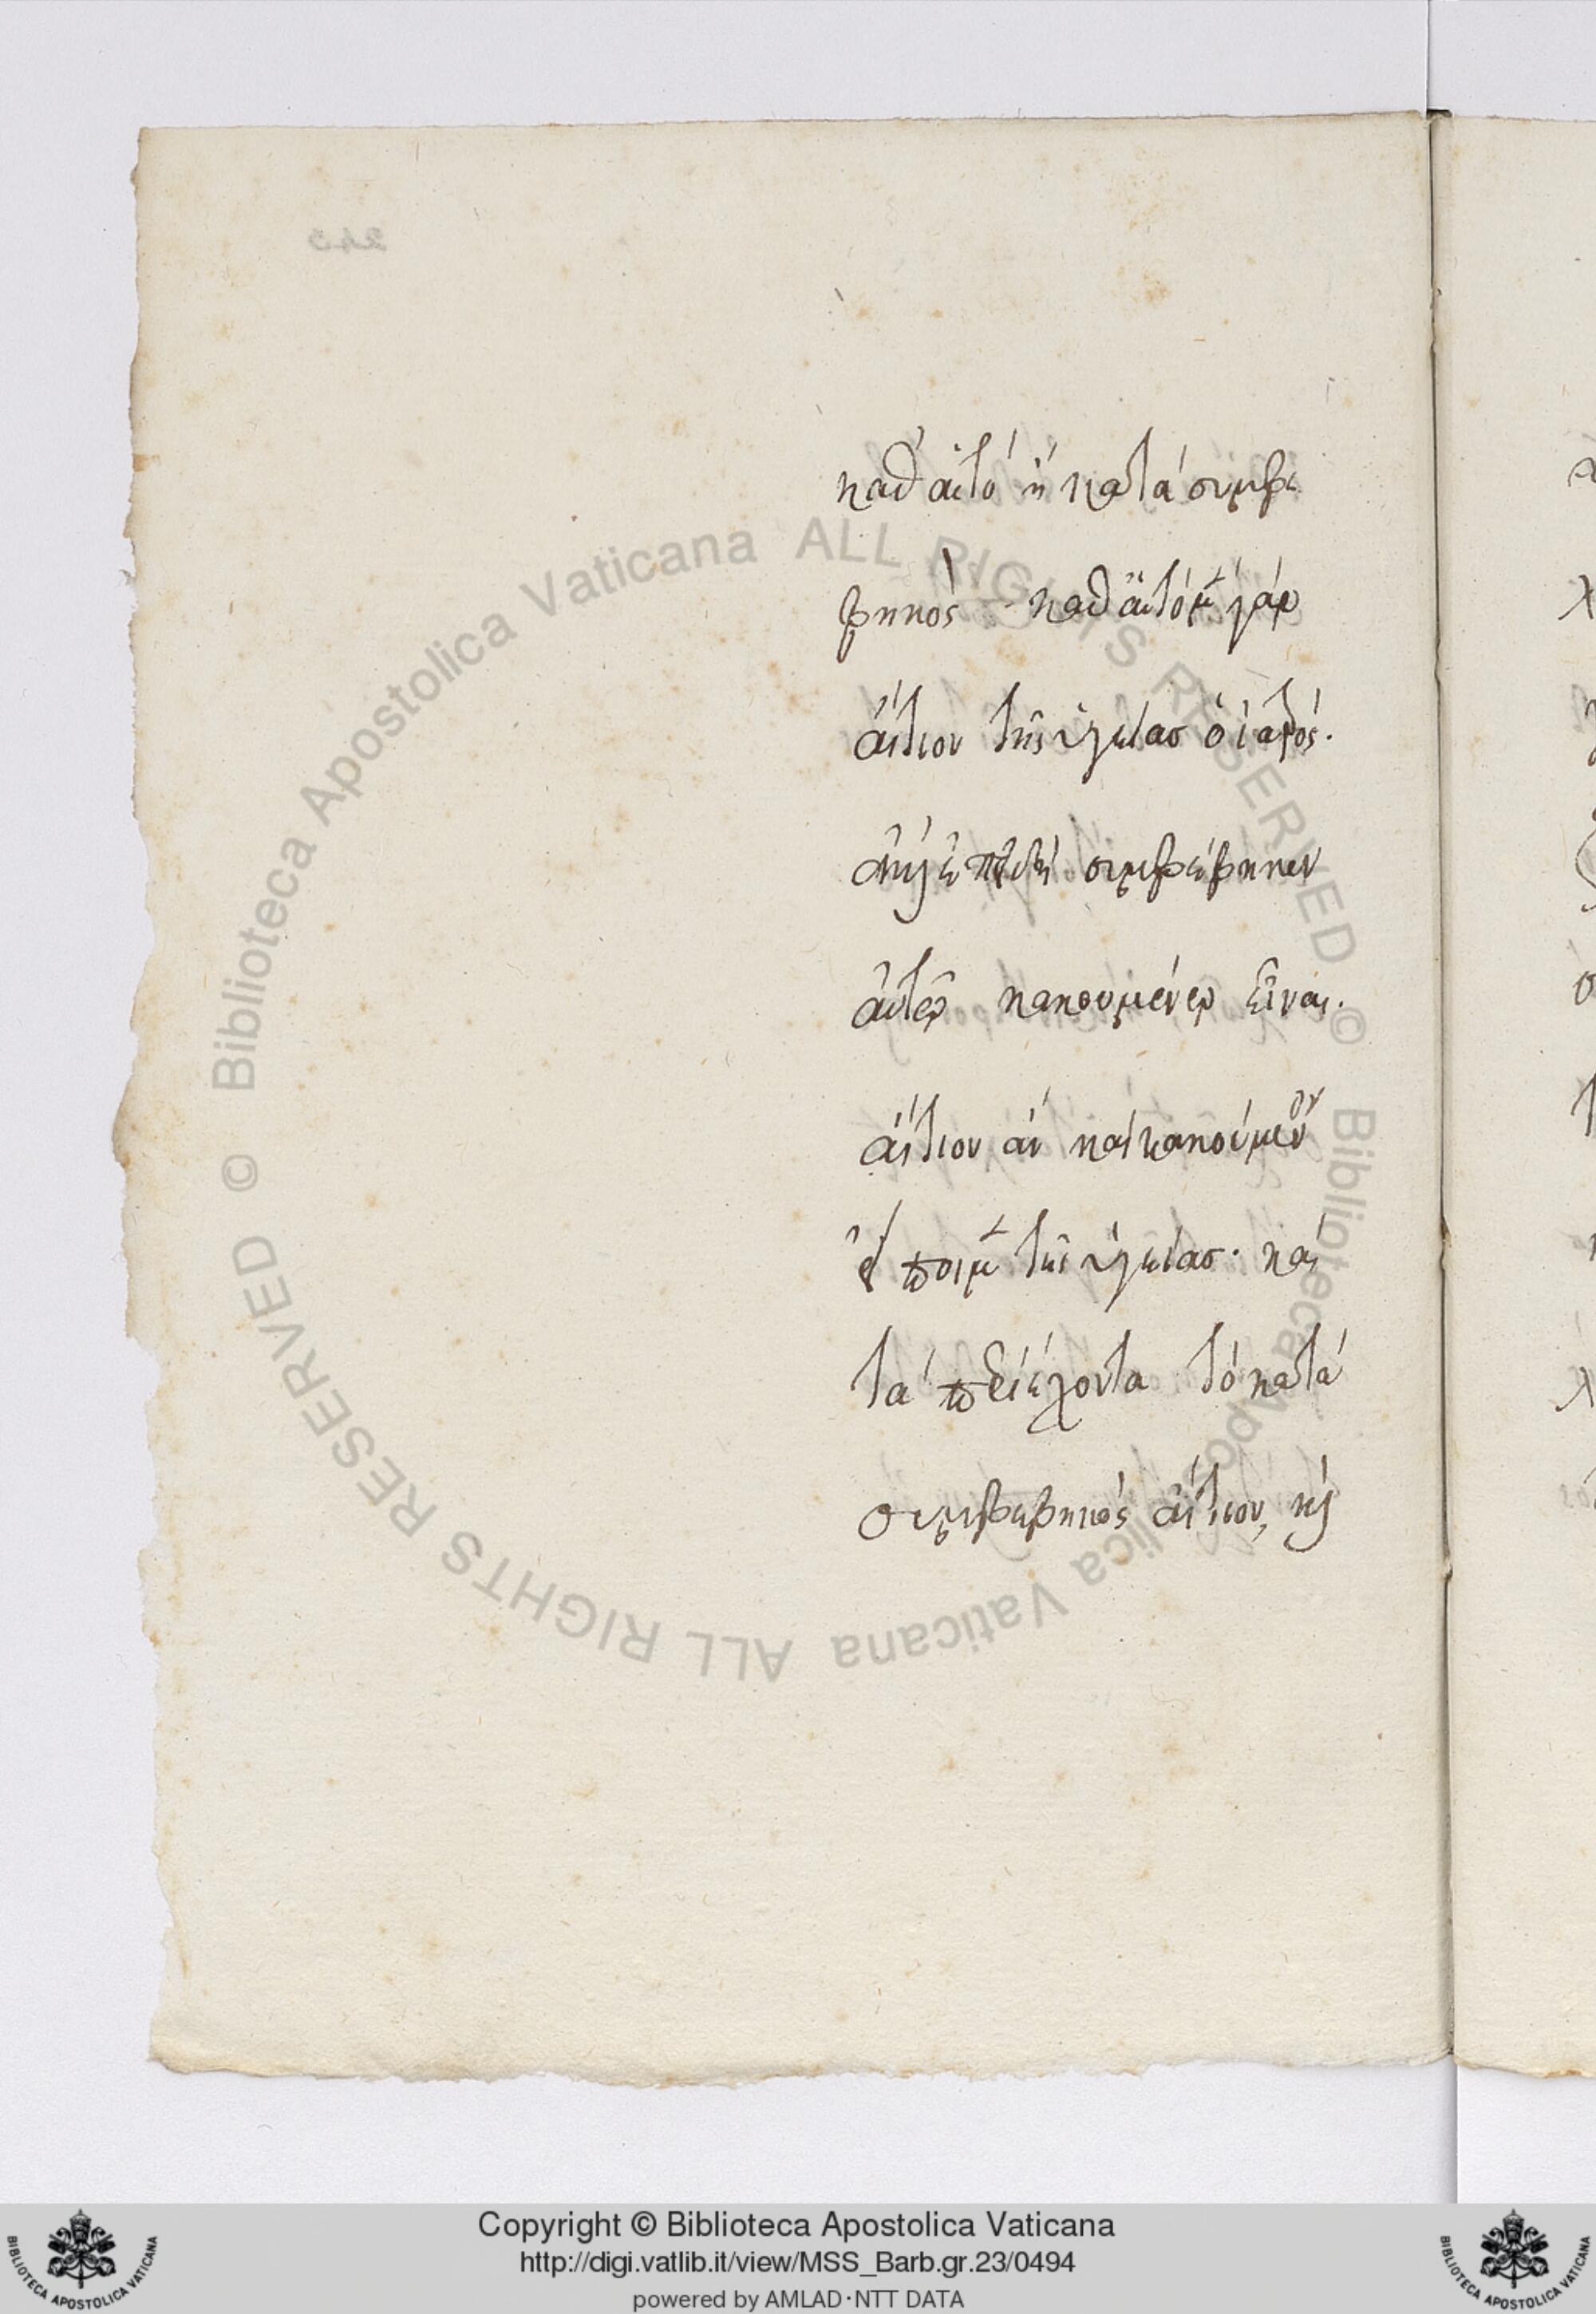 καθ' αὑτό ἢ κατά συμβε
βηκός καθ' αὑτό μ̀ γάρ
αἴτιον τῆς ὑγείασ ὁ ἰατρός.
συμβέβηκεν
αὐτῷ κακουμένῳ εἶναι.
αἴτιον ἀν καί κακούμενον
τῆς ὑγείασ. καί
τά περιέχοντα τό κατά
συμβεβηκός αἴτιον, κὴ
Biblioteca Apostolica Vaticana ALL RIGHTS RESERVED ©
Biblioteca Apostolica Vaticana ALL RIGHTS RESERVED ©
Copyright © Biblioteca Apostolica Vaticana
http://digi.vatlib.it/view/MSS_Barb.gr.23/0494
powered by AMLAD·NTT DATA
BIBLIOTECA APOSTOLICA VATICANA
BIBLIOTECA APOSTOLICA VATICANA